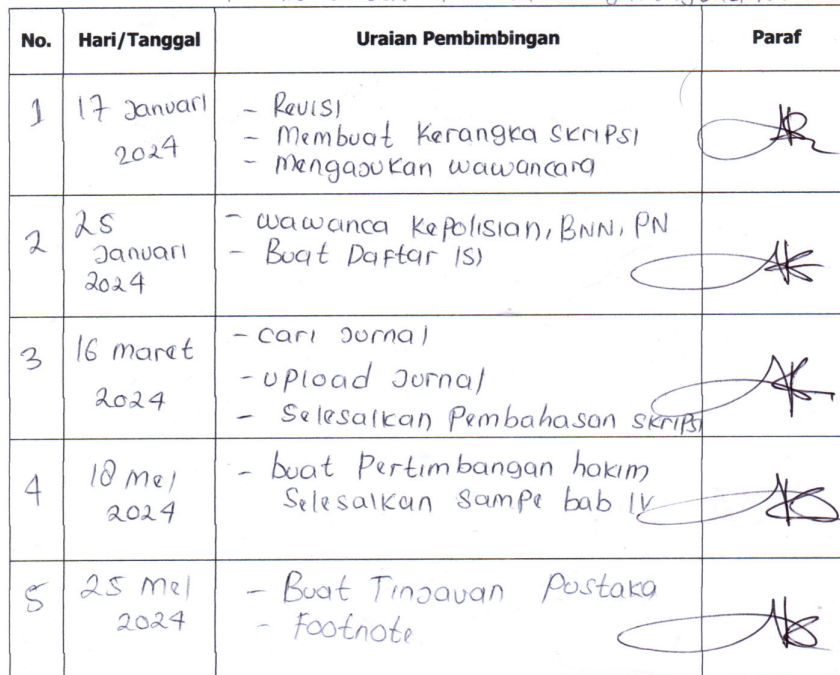 No. Hari/Tanggal Uraian Pembimbingan Paraf
1 17 Januari 2024
- Revisi
- Membuat Kerangka skripsi
- Mengajukan wawancara
2 25 Januari 2024
- wawanca Kepolisian, BNN, PN
- Buat Daftar isi
3 16 maret 2024
- cari Jurnal
- upload Jurnal
- Selesaikan Pembahasan skripsi
4 18 mei 2024
- buat Pertimbangan hakim
Selesaikan sampe bab IV
5 25 mei 2024
- Buat Tinjauan Pustaka
- Footnote